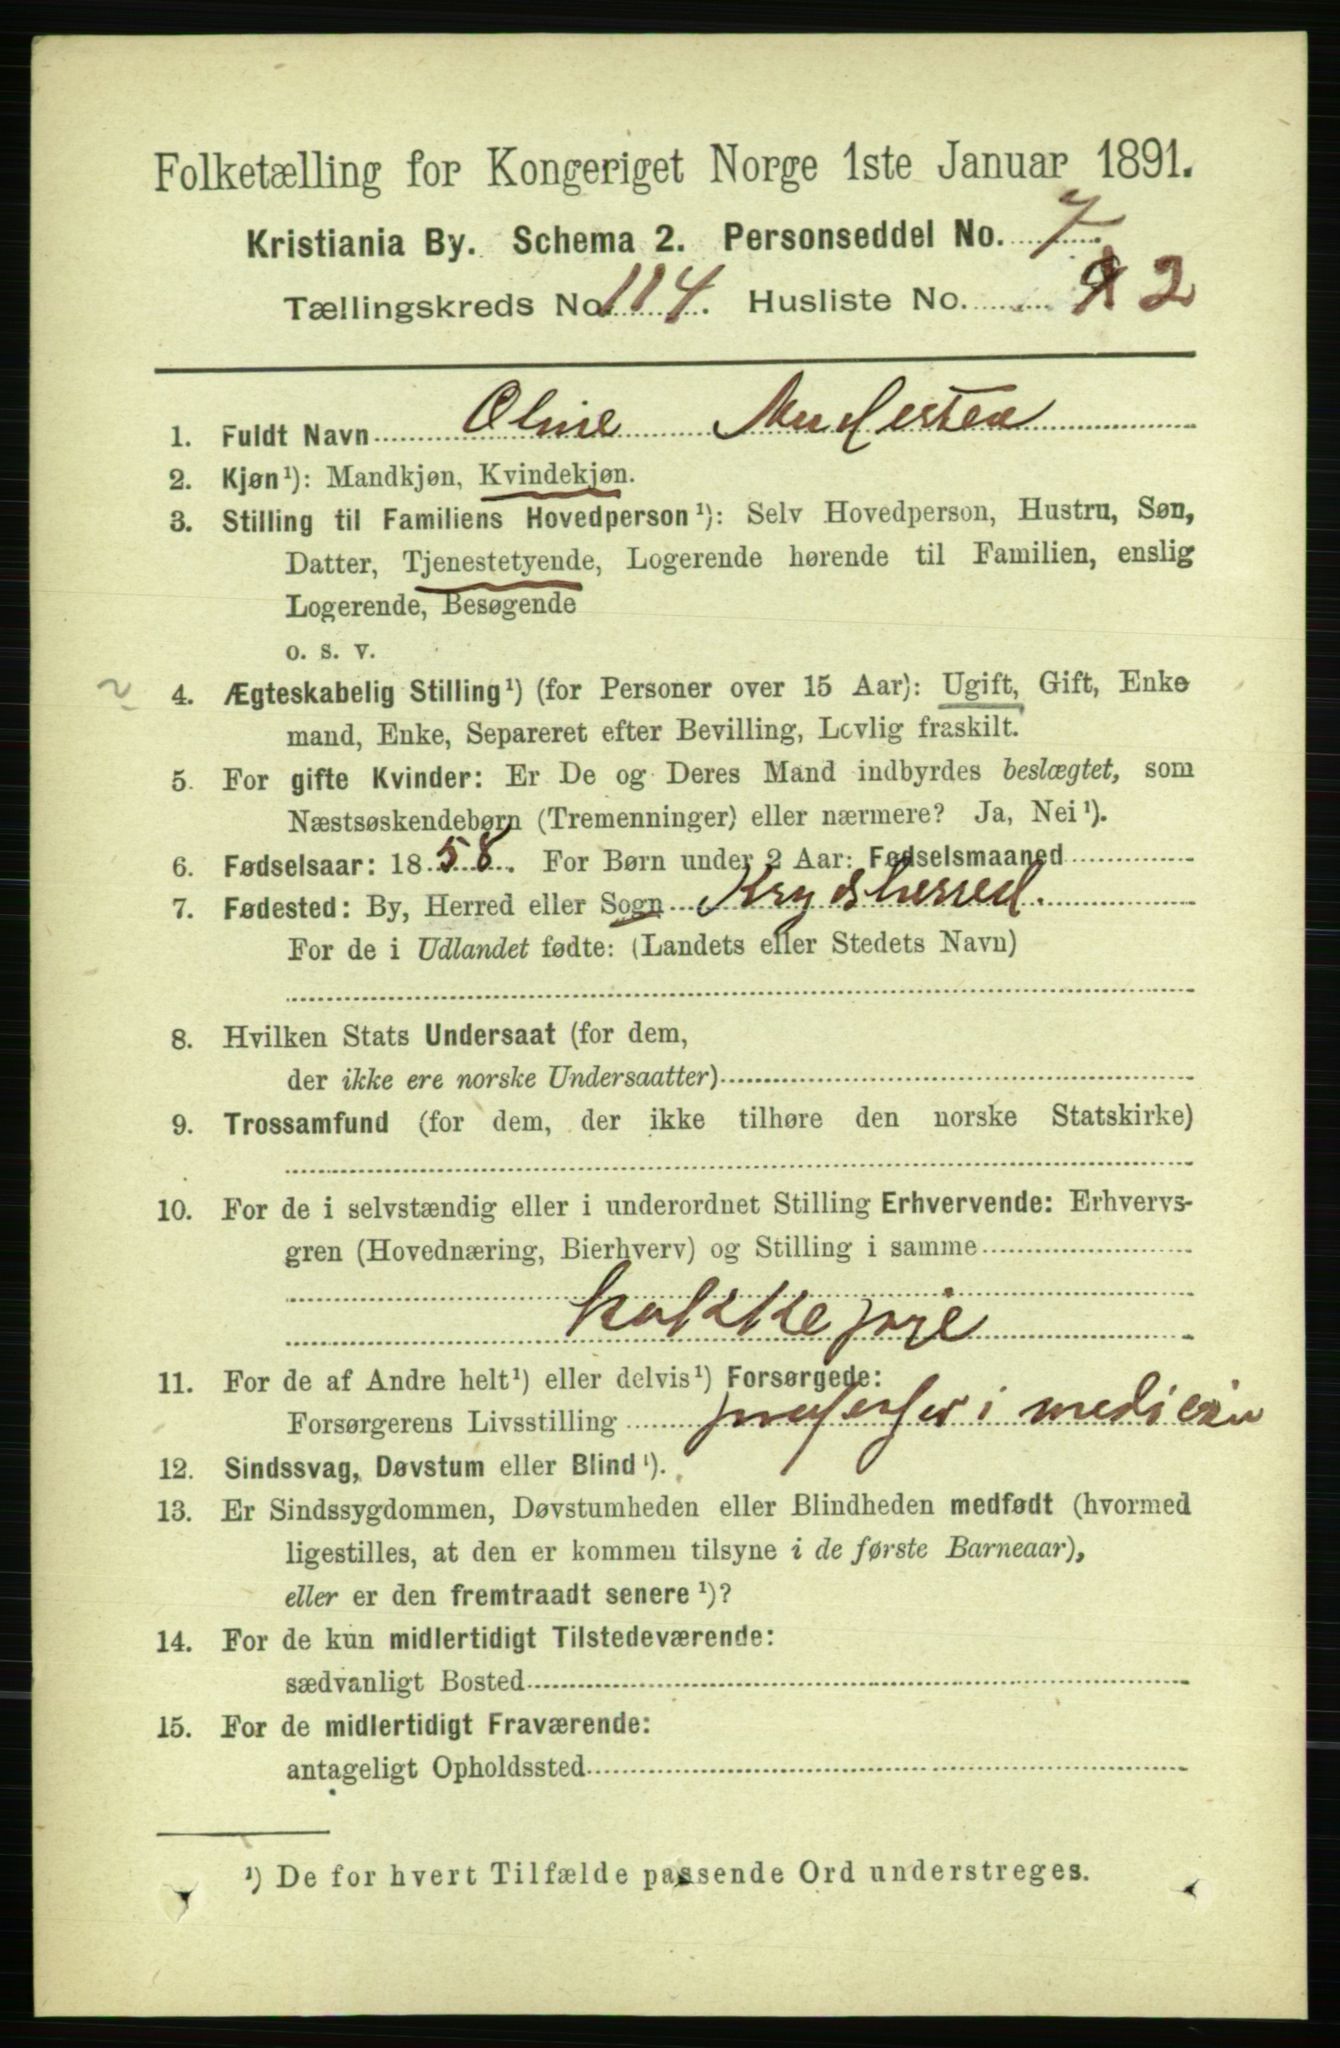 Folketælling for Kongeriget Norge 1ste Januar 1891.
Kristiania By. Schema 2. Personseddel No. 7
Tællingskreds No. 114. Husliste No. 2
1. Fuldt Navn Oline Andersen
2. Kjøn¹): Mandkjøn, Kvindekjøn.
3. Stilling til Familiens Hovedperson¹): Selv Hovedperson, Hustru, Søn,
Datter, Tjenestetyende, Logerende hørende til Familien, enslig
Logerende, Besøgende
o. s. v.
4. Ægteskabelig Stilling¹) (for Personer over 15 Aar): Ugift, Gift, Enke
mand, Enke, Separeret efter Bevilling, Lovlig fraskilt.
5. For gifte Kvinder: Er De og Deres Mand indbyrdes beslægtet, som
Næstsøskendebørn (Tremenninger) eller nærmere? Ja, Nei¹).
6. Fødselsaar: 1858. For Børn under 2 Aar: Fødselsmaaned
7. Fødested: By, Herred eller Sogn Krydsherred.
For de i Udlandet fødte: (Landets eller Stedets Navn)
8. Hvilken Stats Undersaat (for dem,
der ikke ere norske Undersaatter)
9. Trossamfund (for dem, der ikke tilhøre den norske Statskirke)
10. For de i selvstændig eller i underordnet Stilling Erhvervende: Erhvervs-
gren (Hovednæring, Bierhverv) og Stilling i samme
kokkepige
11. For de af Andre helt¹) eller delvis¹) Forsørgede:
Forsørgerens Livsstilling professor i medicin
12. Sindssvag, Døvstum eller Blind¹).
13. Er Sindssygdommen, Døvstumheden eller Blindheden medfødt (hvormed
ligestilles, at den er kommen tilsyne i de første Barneaar),
eller er den fremtraadt senere¹)?
14. For de kun midlertidigt Tilstedeværende:
sædvanligt Bosted
15. For de midlertidigt Fraværende:
antageligt Opholdssted
¹) De for hvert Tilfælde passende Ord understreges.